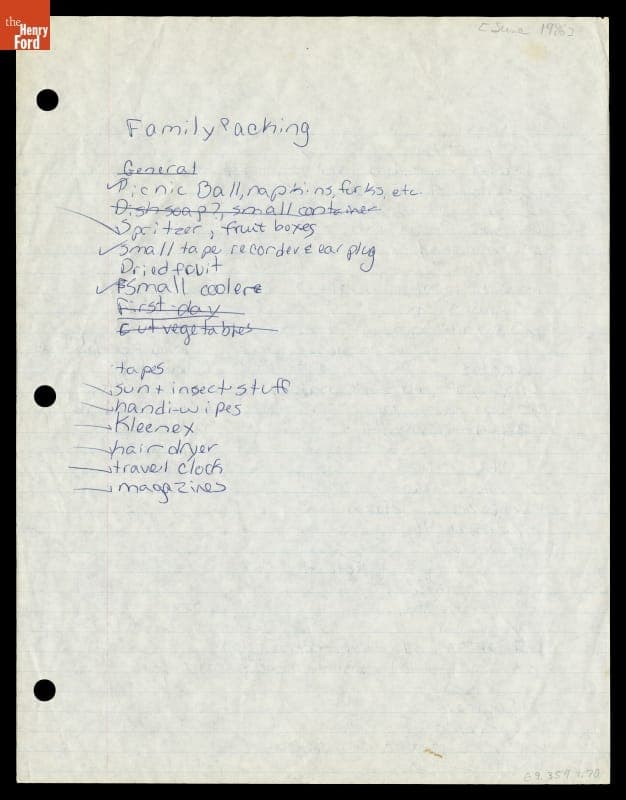 the
Henry
Ford
[June 198
Family Packing
General
Picnic Ball, napkins, forks, etc.
Dish soap?, small container
Spritzer, fruit boxes
small tape recorder & ear plug
Dried fruit
Small cooler
First day
Cut vegetables
tapes
sun + insect stuff
handi-wipes
Kleenex
hair dryer
travel clock
magazines